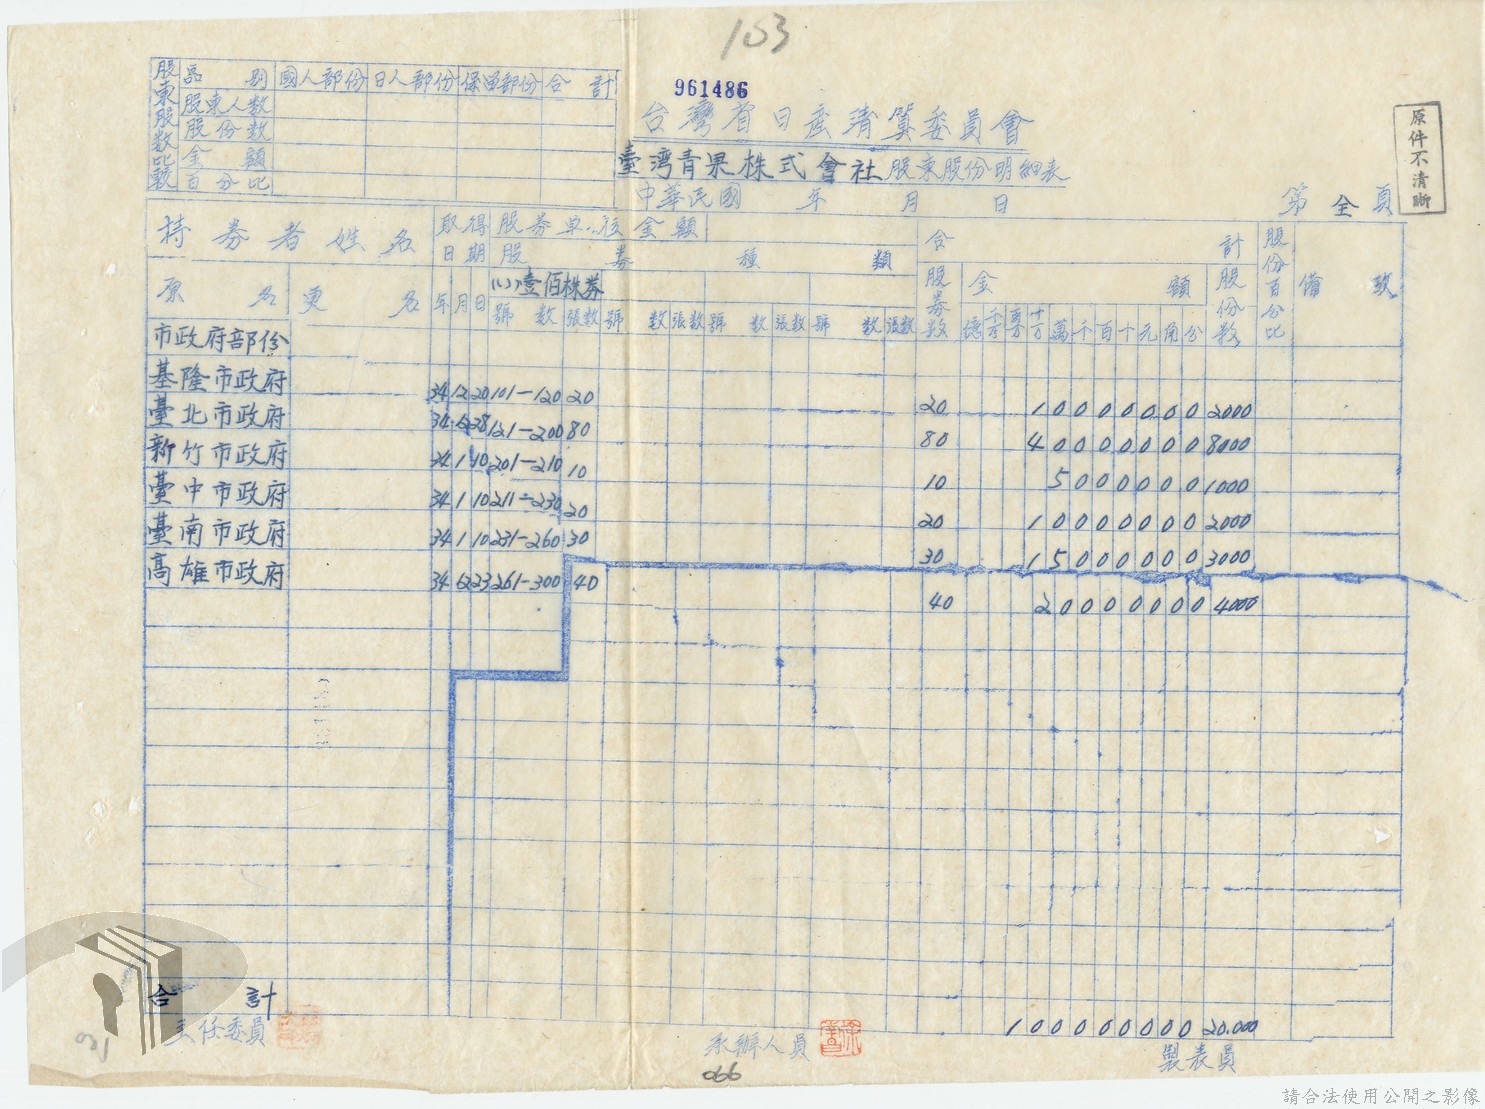 103
961486
台灣省日產清算委員會
臺湾青果株式會社股東股份明細表
中華民國 年 月 日
第 全 頁
原件不清晰
股東股數比較
區別 國人部份 日人部份 保留部份 合計
股東人數
股份數
金額
百分比
持券者姓名 取得日期 股券單位金額 合計 股份百分比 備攷
股券種類
原名 更名 年 月 日 (1)壹佰株券 股券數 金額 股份數
號數 張數 號數 張數 號數 張數 號數 張數 億 千万 百万 十万 萬 千 百 十 元 角 分
市政府部份
基隆市政府 34 12 20 101-120 20 20 10000000 2000
臺北市政府 34 6 28 121-200 80 80 40000000 8000
新竹市政府 34 1 10 201-210 10 10 5000000 1000
臺中市政府 34 1 10 211-230 20 20 10000000 2000
臺南市政府 34 1 10 231-260 30 30 15000000 3000
高雄市政府 34 6 23 261-300 40 40 20000000 4000
合計 100000000 20.000
主任委員 承辦人員 製表員
066
請合法使用公開之影像